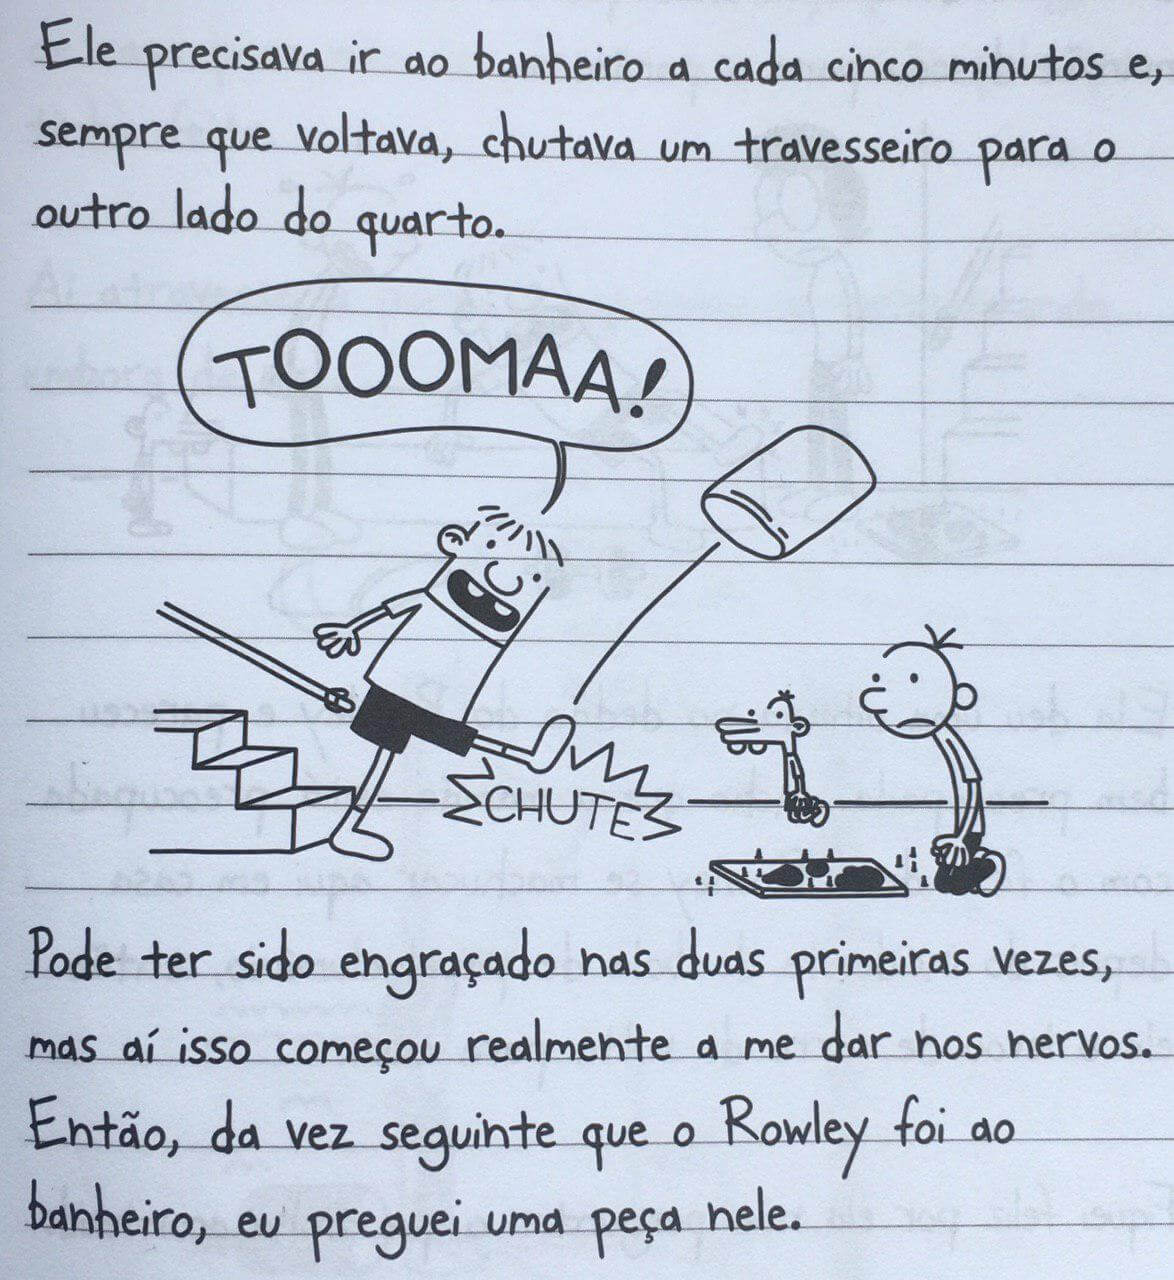 Ele precisava ir ao banheiro a cada cinco minutos e,
sempre que voltava, chutava um travesseiro para o
outro lado do quarto.
TOOOMAA!
CHUTE
Pode ter sido engraçado nas duas primeiras vezes,
mas aí isso começou realmente a me dar nos nervos.
Então, da vez seguinte que o Rowley foi ao
banheiro, eu preguei uma peça nele.